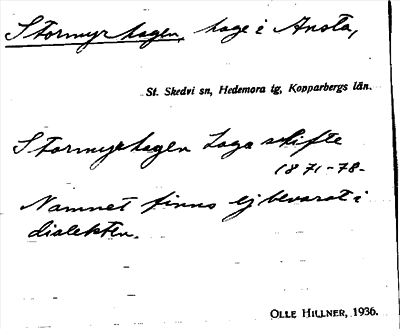 Stormyrhagen, hage i Ansta,
St. Skedvi sn, Hedemora tg, Kopparbergs län.
Stormyrhagen Laga skifte
1871-78-
Namnet finns ej bevarat i
dialekten.
OLLE HILLNER, 1936.